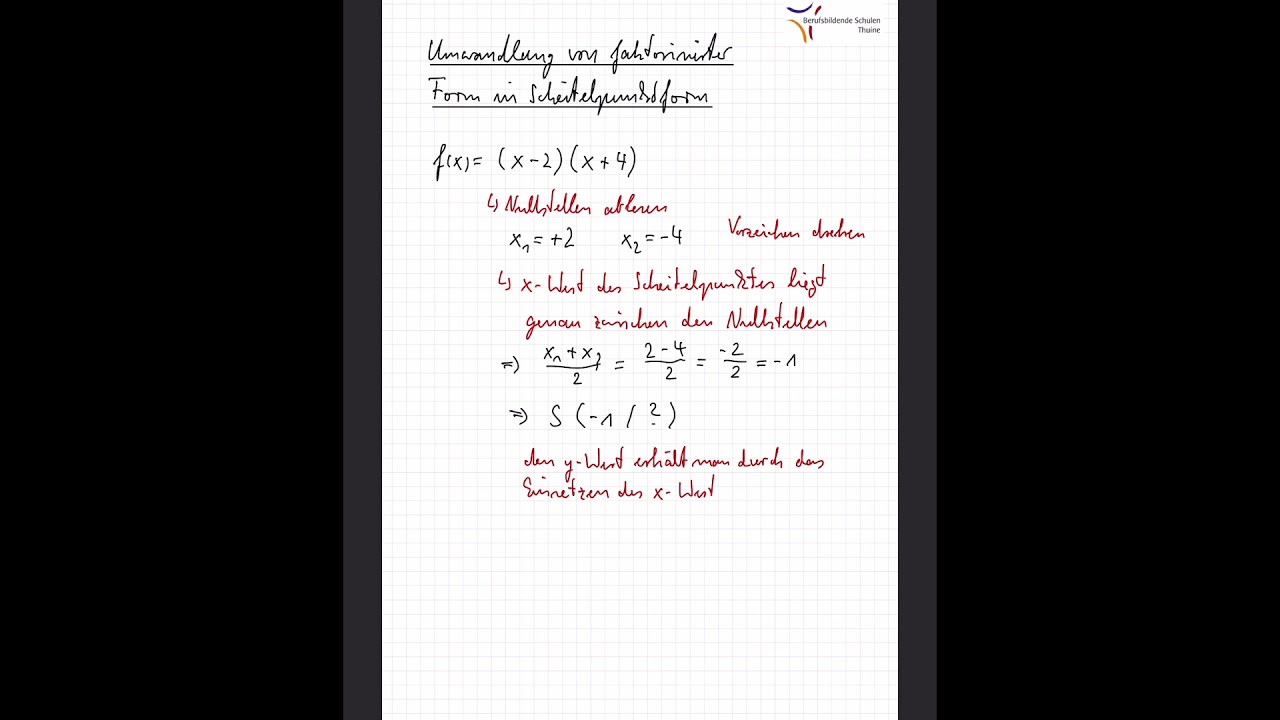 Berufsbildende Schulen
Thuine
Umwandlung von faktorisierter
Form in Scheitelpunktsform
f(x) = (x-2)(x+4)
↳ Nullstellen ablesen
x₁ = +2 x₂ = -4 Vorzeichen drehen
↳ x-Wert des Scheitelpunktes liegt
genau zwischen den Nullstellen
⇒ (x₁ + x₂)/2 = (2-4)/2 = -2/2 = -1
⇒ S (-1 / ?)
den y-Wert erhält man durch das
Einsetzen des x-Wert